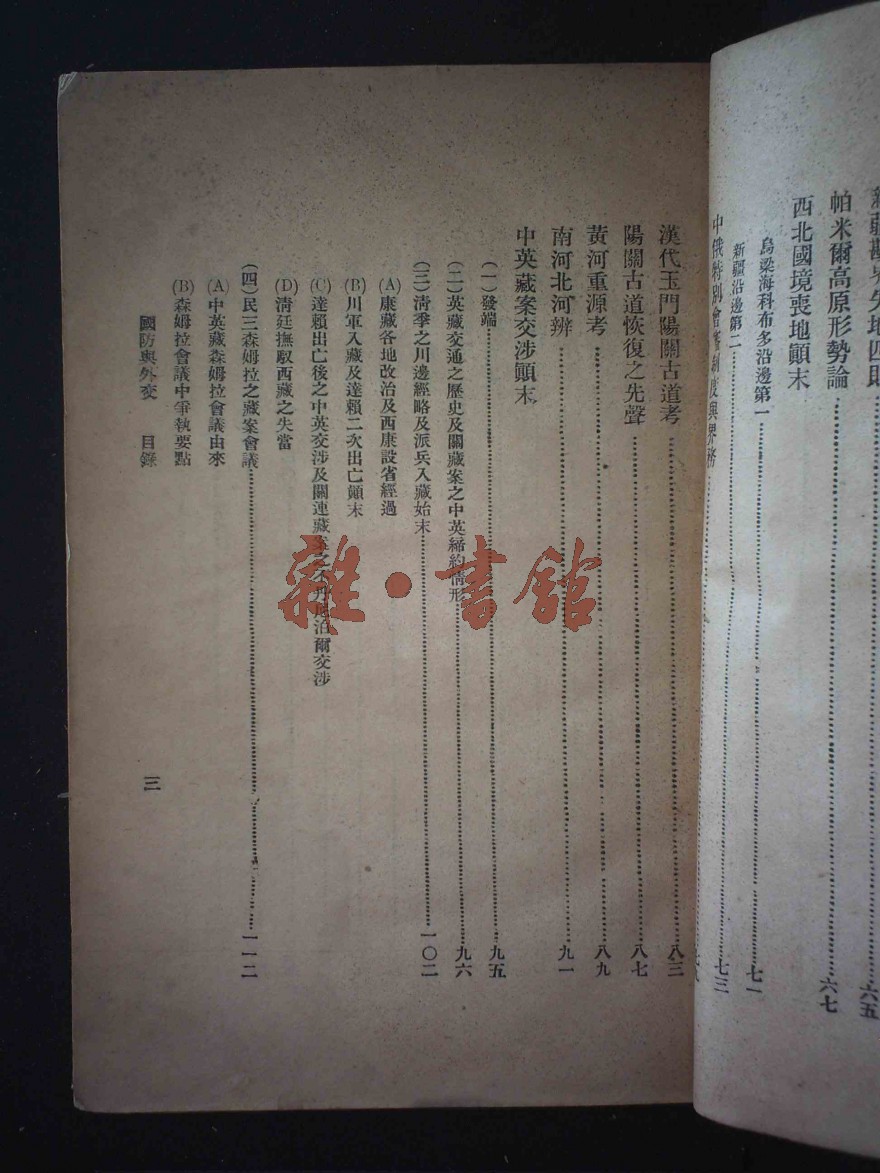 新疆勘界失地四則……六五
帕米爾高原形勢論……六七
西北國境喪地顛末
烏梁海科布多沿邊第一……七一
新疆沿邊第二……七三
中俄特別會 制度與界務……
漢代玉門陽關古道考……八三
陽關古道恢復之先聲……八七
黃河重源考……八九
南河北河辨……九一
中英藏案交涉顛末
(一)發端……九五
(二)英藏交通之歷史及關藏案之中英締約情形……九六
(三)淸季之川邊經略及派兵入藏始末……一〇二
(A)康藏各地改治及西康設省經過
(B)川軍入藏及達賴二次出亡顛末
(C)達賴出亡後之中英交涉及關連藏案之 泊爾交涉
(D)淸廷撫馭西藏之失當
(四)民三森姆拉之藏案會議……一一二
(A)中英藏森姆拉會議由來
(B)森姆拉會議中爭執要點
國防與外交 目錄
三
雜·書館